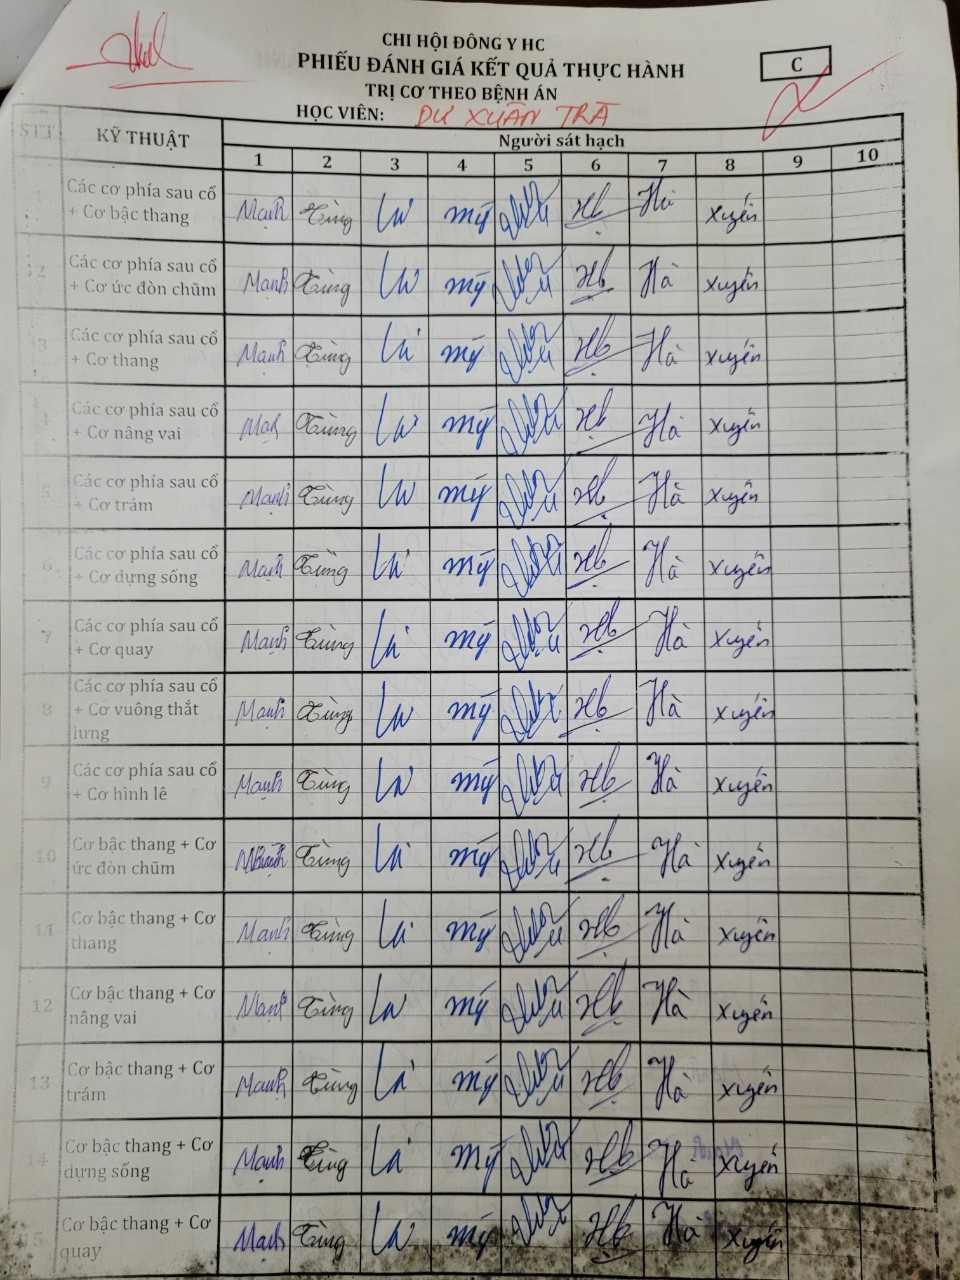 CHI HỘI ĐÔNG Y HC
PHIẾU ĐÁNH GIÁ KẾT QUẢ THỰC HÀNH
C
TRỊ CƠ THEO BỆNH ÁN
HỌC VIÊN: DƯ XUÂN TRÀ
STT KỸ THUẬT Người sát hạch
1 2 3 4 5 6 7 8 9 10
Các cơ phía sau cổ
+ Cơ bậc thang
Mạnh Tùng Lư Mỹ Hà Xuyến
2 Các cơ phía sau cổ
+ Cơ ức đòn chũm
Mạnh Tùng Lư Mỹ Hà Xuyến
3 Các cơ phía sau cổ
+ Cơ thang
Mạnh Tùng Lư Mỹ Hà Xuyến
4 Các cơ phía sau cổ
+ Cơ nâng vai
Mạnh Tùng Lư Mỹ Hà Xuyến
5 Các cơ phía sau cổ
+ Cơ trám
Mạnh Tùng Lư Mỹ Hà Xuyến
6 Các cơ phía sau cổ
+ Cơ dựng sống
Mạnh Tùng Lư Mỹ Hà Xuyến
7 Các cơ phía sau cổ
+ Cơ quay
Mạnh Tùng Lư Mỹ Hà Xuyến
8 Các cơ phía sau cổ
+ Cơ vuông thắt
lưng
Mạnh Tùng Lư Mỹ Hà Xuyến
9 Các cơ phía sau cổ
+ Cơ hình lê
Mạnh Tùng Lư Mỹ Hà Xuyến
10 Cơ bậc thang + Cơ
ức đòn chũm
Mạnh Tùng Lư Mỹ Hà Xuyến
11 Cơ bậc thang + Cơ
thang
Mạnh Tùng Lư Mỹ Hà Xuyến
12 Cơ bậc thang + Cơ
nâng vai
Mạnh Tùng Lư Mỹ Hà Xuyến
13 Cơ bậc thang + Cơ
trám
Mạnh Tùng Lư Mỹ Hà Xuyến
14 Cơ bậc thang + Cơ
dựng sống
Mạnh Tùng Lư Mỹ Hà Xuyến
15 Cơ bậc thang + Cơ
quay
Mạnh Tùng Lư Mỹ Hà Xuyến